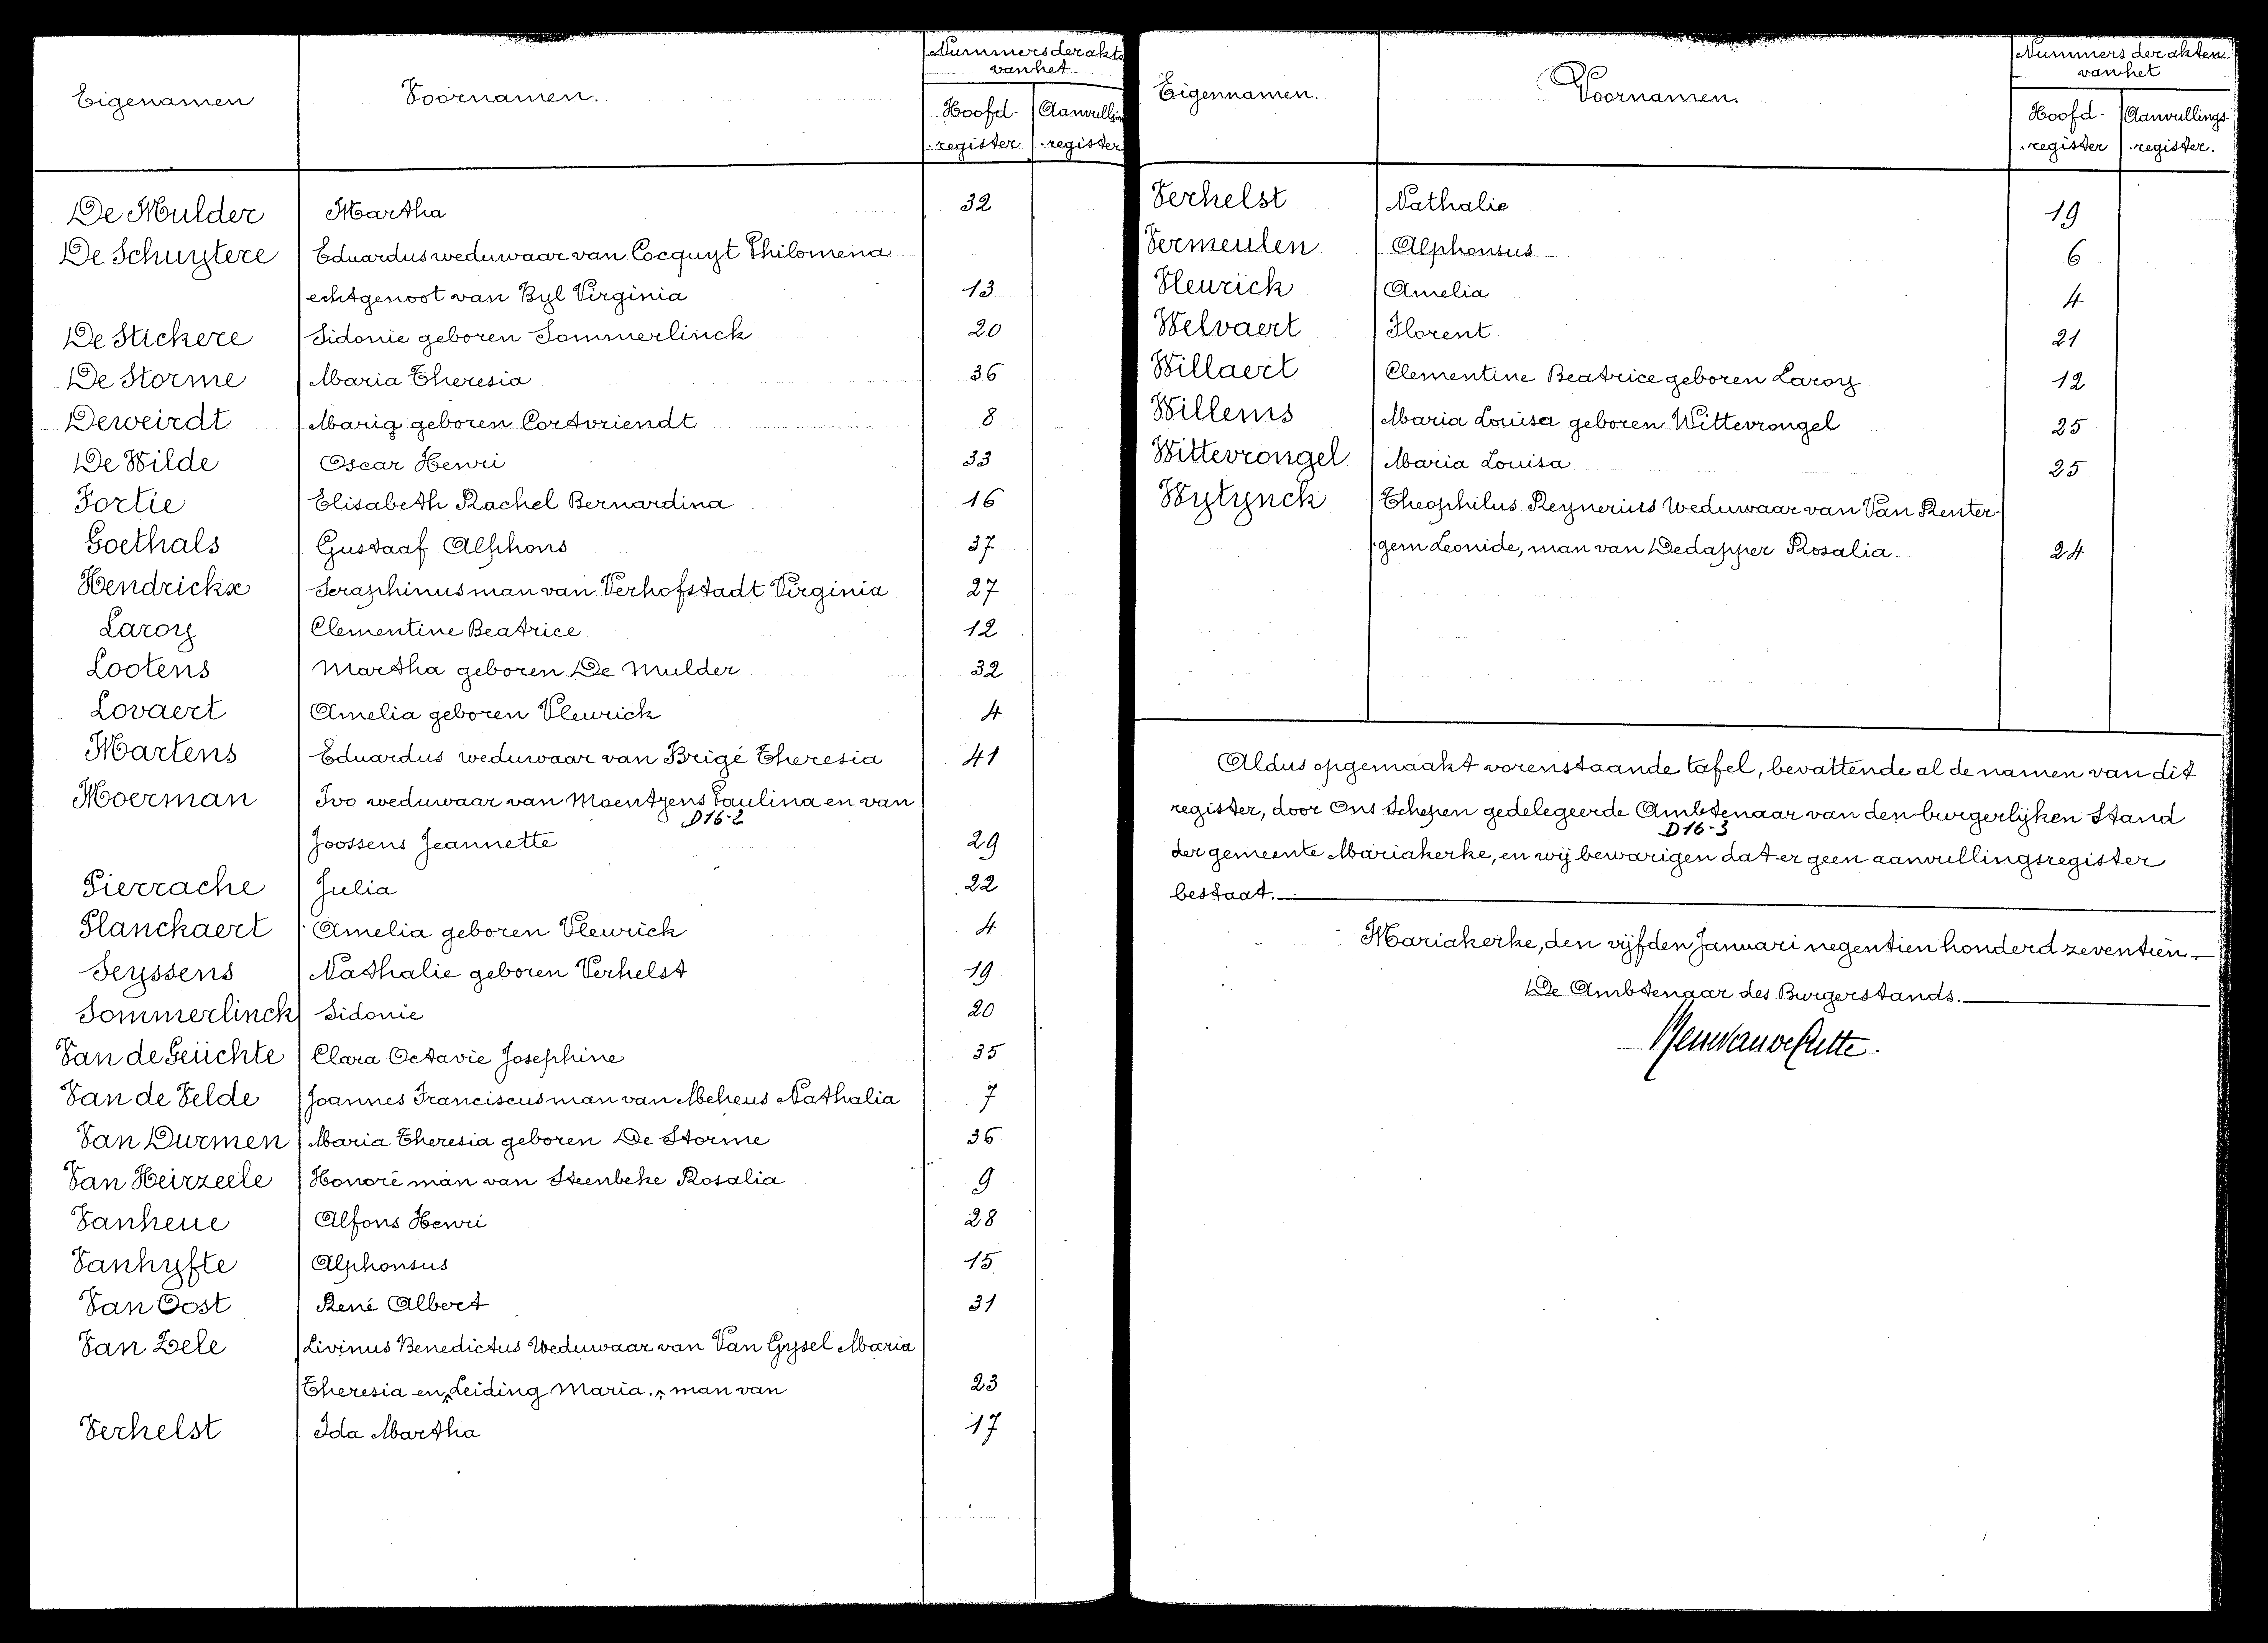 Eigenamen Voornamen. Nummers der akte
van het
Hoofd- Aanvullin
register register
De Mulder Martha 32
De Schuytere Eduardus weduwaar van Cocquyt Philomena
echtgenoot van Byl Virginia 13
De Stickere Sidonie geboren Sommerlinck 20
De Storme Maria Theresia 36
Deweirdt Maria geboren Cortvriendt 8
De Wilde Oscar Henri 33
Fortie Elisabeth Rachel Bernardina 16
Goethals Gustaaf Alphons 37
Hendrickx Seraphinus man van Verhofstadt Virginia 27
Laroy Clementine Beatrice 12
Lootens Martha geboren De Mulder 32
Lovaert Amelia geboren Vleurick 4
Martens Eduardus weduwaar van Brigé Theresia 41
Moerman Ivo weduwaar van Moentjens Paulina en van
D16-2
Joossens Jeannette 29
Pierrache Julia 22
Planckaert Amelia geboren Vleurick 4
Seyssens Nathalie geboren Verhelst 19
Sommerlinck Sidonie 20
Van de Geüchte Clara Octavie Josephine 35
Van de Velde Joannes Franciscus man van Meheus Nathalia 7
Van Durmen Maria Theresia geboren De Storme 36
Van Heirzeele Honoré man van Steenbeke Rosalia 9
Vanheue Alfons Henri 28
Vanhyfte Alphonsus 15
Van Oost René Albert 31
Van Zele Livinus Benedictus Weduwaar van Van Gysel Maria
Theresia en Leiding Maria. man van 23
Verhelst Ida Martha 17
Eigennamen. Voornamen. Nummers der akten
van het
Hoofd- Aanvullings-
register register.
Verhelst Nathalie 19
Vermeulen Alphonsus 6
Vleurick Amelia 4
Welvaert Florent 21
Willaert Clementine Beatrice geboren Laroy 12
Willems Maria Louisa geboren Wittevrongel 25
Wittevrongel Maria Louisa 25
Wytynck Theophilus Reynerius Weduwaar van Van Renter-
gem Leonide, man van Dedapper Rosalia. 24
Aldus opgemaakt vorenstaande tafel, bevattende al de namen van dit
register, door Ons Schepen gedelegeerde Ambtenaar van den burgerlijken Stand
D16-3
der gemeente Mariakerke, en wij bewarigen dat er geen aanvullingsregister
bestaat.
Mariakerke, den vijfden Januari negentien honderd zeventien.
De Ambtenaar des Burgerstands.